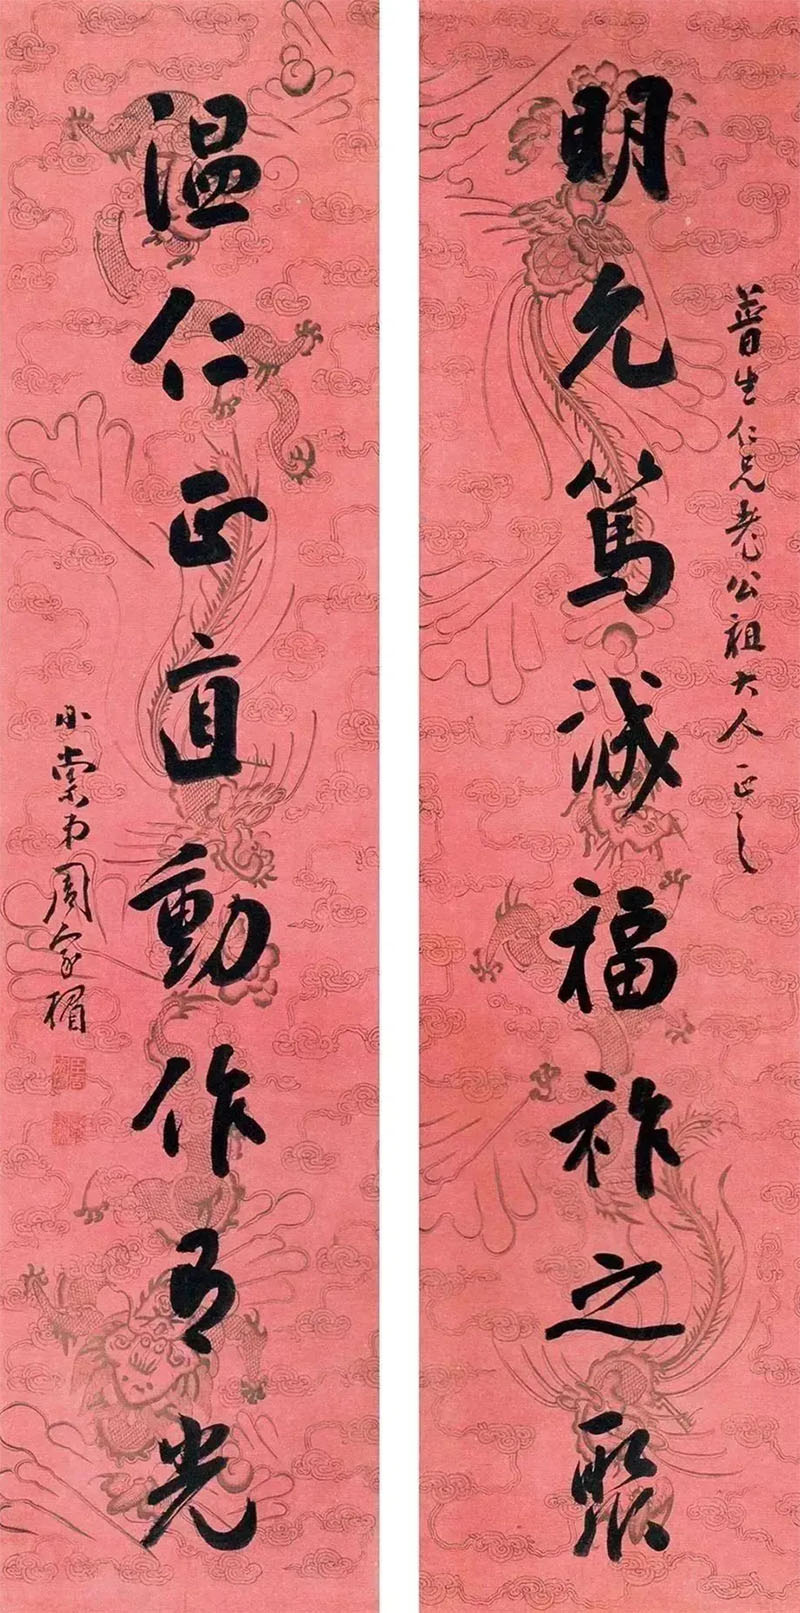 普生仁兄老公祖大人正之
明允篤誠福祚之聚
温仁正直動作有光
小棠弟周家楣